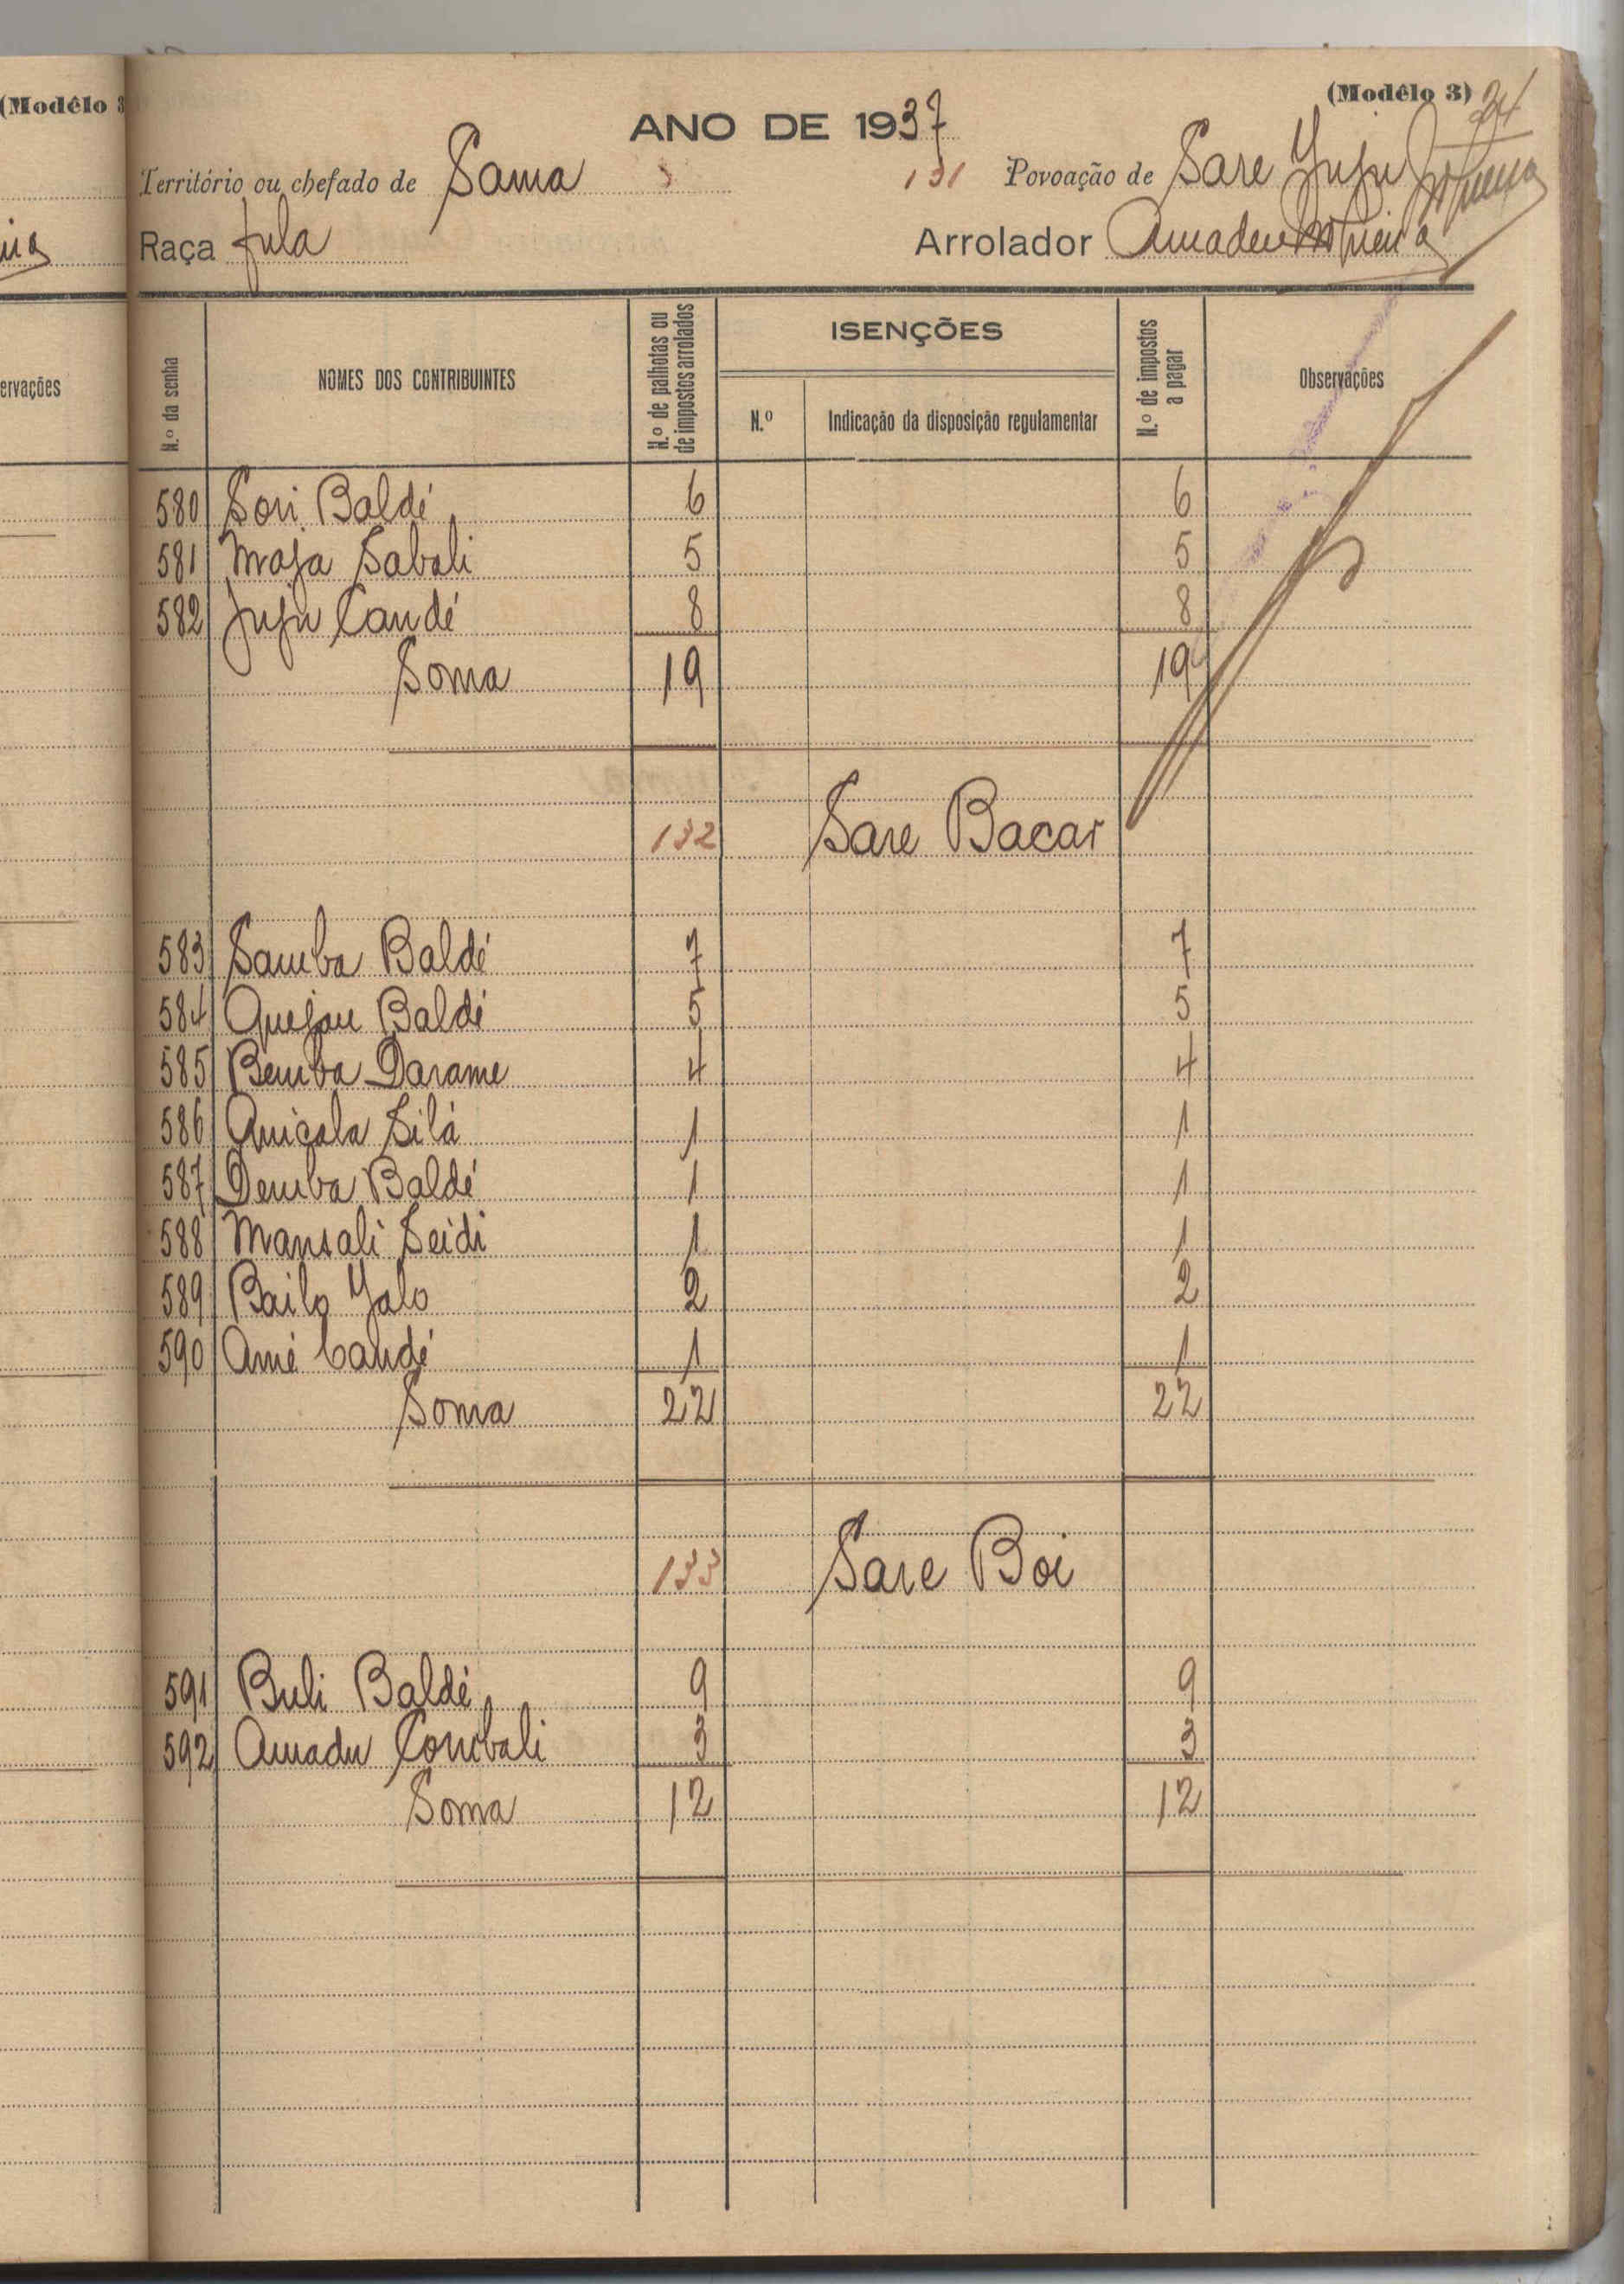 (Modêlo 3
ervações
(Modêlo 3) 24
ANO DE 1937
Território ou chefado de Sama 131 Povoação de Sare Juju
Raça fula Arrolador Amadeu Nogueira
N.º da senha NOMES DOS CONTRIBUINTES N.º de palhotas ou de impostos arrolados ISENÇÕES N.º de impostos a pagar Observações
N.º Indicação da disposição regulamentar
580 Sori Baldé 6 6
581 Maja Sabali 5 5
582 Juju Candé 8 8
Soma 19 19
132 Sare Bacar
583 Samba Baldé 7 7
584 Quejau Baldé 5 5
585 Bemba Darame 4 4
586 Silá 1 1
587 Demba Baldé 1 1
588 Mansali Seidi 1 1
589 Bailo Jalo 2 2
590 Amé Candé 1 1
Soma 22 22
133 Sare Boi
591 Buli Baldé 9 9
592 Amadu Combali 3 3
Soma 12 12